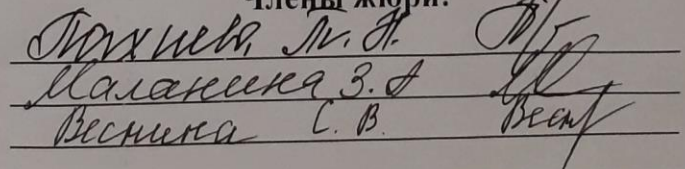 Члены жюри:
Пахиева М. Н.
Маланина З. А
Веснина С. В. Весн